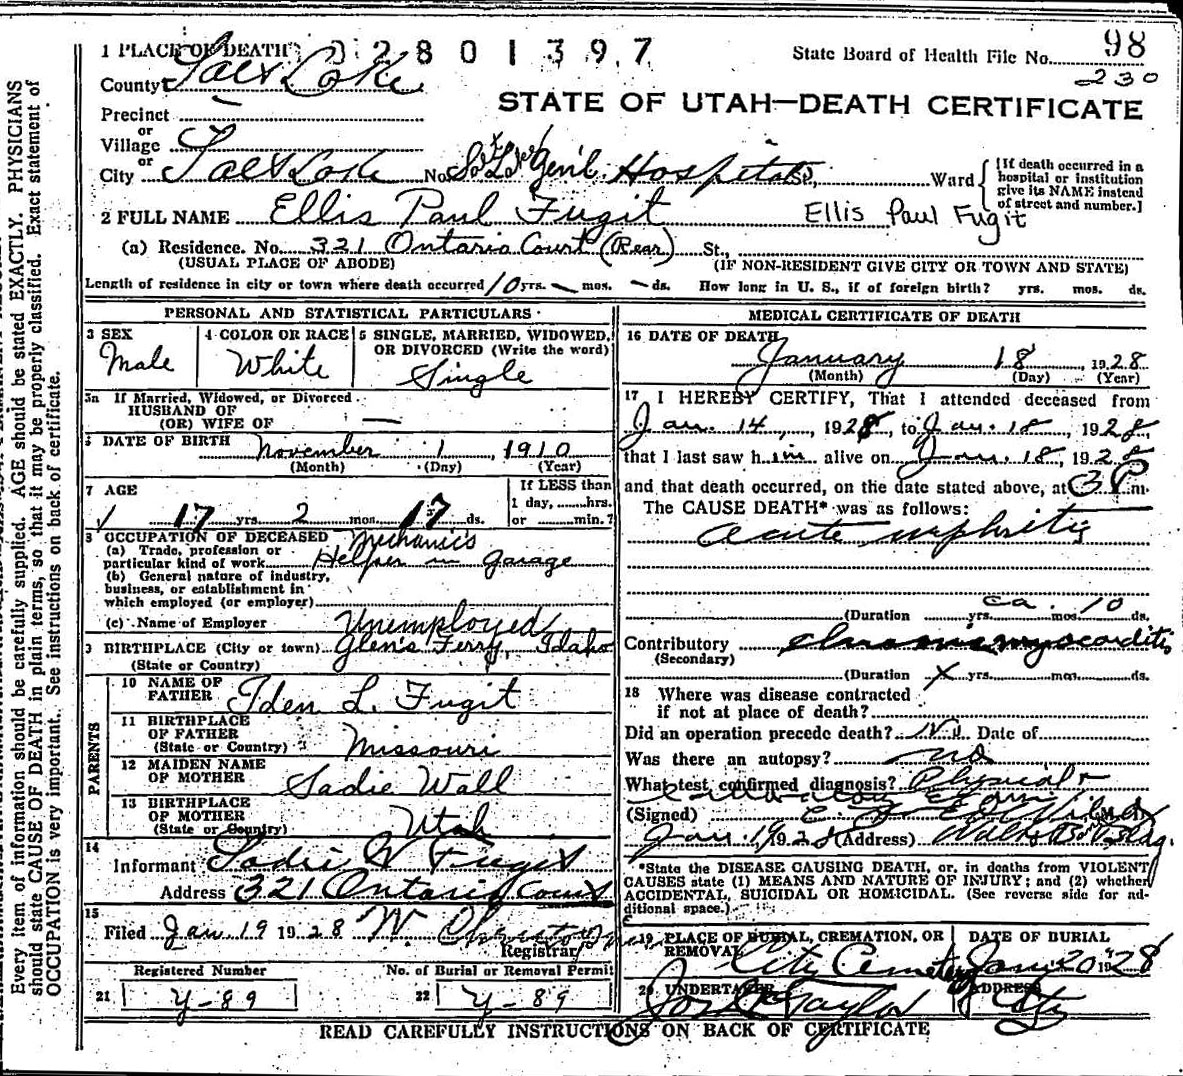 Every item of information should be carefully supplied. AGE should be stated EXACTLY. PHYSICIANS
should state CAUSE OF DEATH in plain terms, so that it may be properly classified. Exact statement of
OCCUPATION is very important. See instructions on back of certificate.
1 PLACE OF DEATH 2801397
State Board of Health File No. 98
230
County Salt Lake
STATE OF UTAH—DEATH CERTIFICATE
Precinct
or
Village
or
City Salt Lake No. Gen'l. Hospital St., Ward
[If death occurred in a
hospital or institution
give its NAME instead
of street and number.]
2 FULL NAME Ellis Paul Fugit Ellis Paul Fugit
(a) Residence. No. 321 Ontario Court (Rear) St.,
(USUAL PLACE OF ABODE) (IF NON-RESIDENT GIVE CITY OR TOWN AND STATE)
Length of residence in city or town where death occurred 10 yrs. — mos. — ds. How long in U. S., if of foreign birth? yrs. mos. ds.
PERSONAL AND STATISTICAL PARTICULARS
3 SEX 4 COLOR OR RACE 5 SINGLE, MARRIED, WIDOWED,
OR DIVORCED (Write the word)
Male White Single
5a If Married, Widowed, or Divorced
HUSBAND OF
(OR) WIFE OF —
6 DATE OF BIRTH November 1, 1910
(Month) (Day) (Year)
7 AGE If LESS than
1 day, hrs.
17 yrs. 2 mos. 17 ds. or min.?
8 OCCUPATION OF DECEASED Mechanic's
(a) Trade, profession or
particular kind of work Helper in garage
(b) General nature of industry,
business, or establishment in
which employed (or employer)
(c) Name of Employer Unemployed
9 BIRTHPLACE (City or town) Glen's Ferry, Idaho
(State or Country)
PARENTS
10 NAME OF
FATHER Iden L. Fugit
11 BIRTHPLACE
OF FATHER
(State or Country) Missouri
12 MAIDEN NAME
OF MOTHER Sadie Wall
13 BIRTHPLACE
OF MOTHER
(State or Country) Utah
14
Informant Sadie W Fugit
Address 321 Ontario Court
15
Filed Jan 19 1928 W.
Registrar
Registered Number No. of Burial or Removal Permit
21 Y-89 22 Y-89
MEDICAL CERTIFICATE OF DEATH
16 DATE OF DEATH
January 18, 1928
(Month) (Day) (Year)
17 I HEREBY CERTIFY, That I attended deceased from
Jan. 14, 1928, to Jan. 18, 1928,
that I last saw him alive on Jan. 18, 1928
and that death occurred, on the date stated above, at 3 P m.
The CAUSE DEATH* was as follows:
acute nephritis
(Duration yrs. ca. mos. 10 ds.
Contributory chronic myocarditis
(Secondary)
(Duration X yrs. mos. ds.
18 Where was disease contracted
if not at place of death?
Did an operation precede death? No Date of
Was there an autopsy? no
What test confirmed diagnosis? Physical &
(Signed) M.D.
Jan. 19, 1928 (Address) Bldg.
*State the DISEASE CAUSING DEATH, or, in deaths from VIOLENT
CAUSES state (1) MEANS AND NATURE OF INJURY; and (2) whether
ACCIDENTAL, SUICIDAL OR HOMICIDAL. (See reverse side for ad-
ditional space.)
19 PLACE OF BURIAL, CREMATION, OR DATE OF BURIAL
REMOVAL
City Cemetery Jan 20 1928
20 UNDERTAKER ADDRESS
Taylor City
READ CAREFULLY INSTRUCTIONS ON BACK OF CERTIFICATE